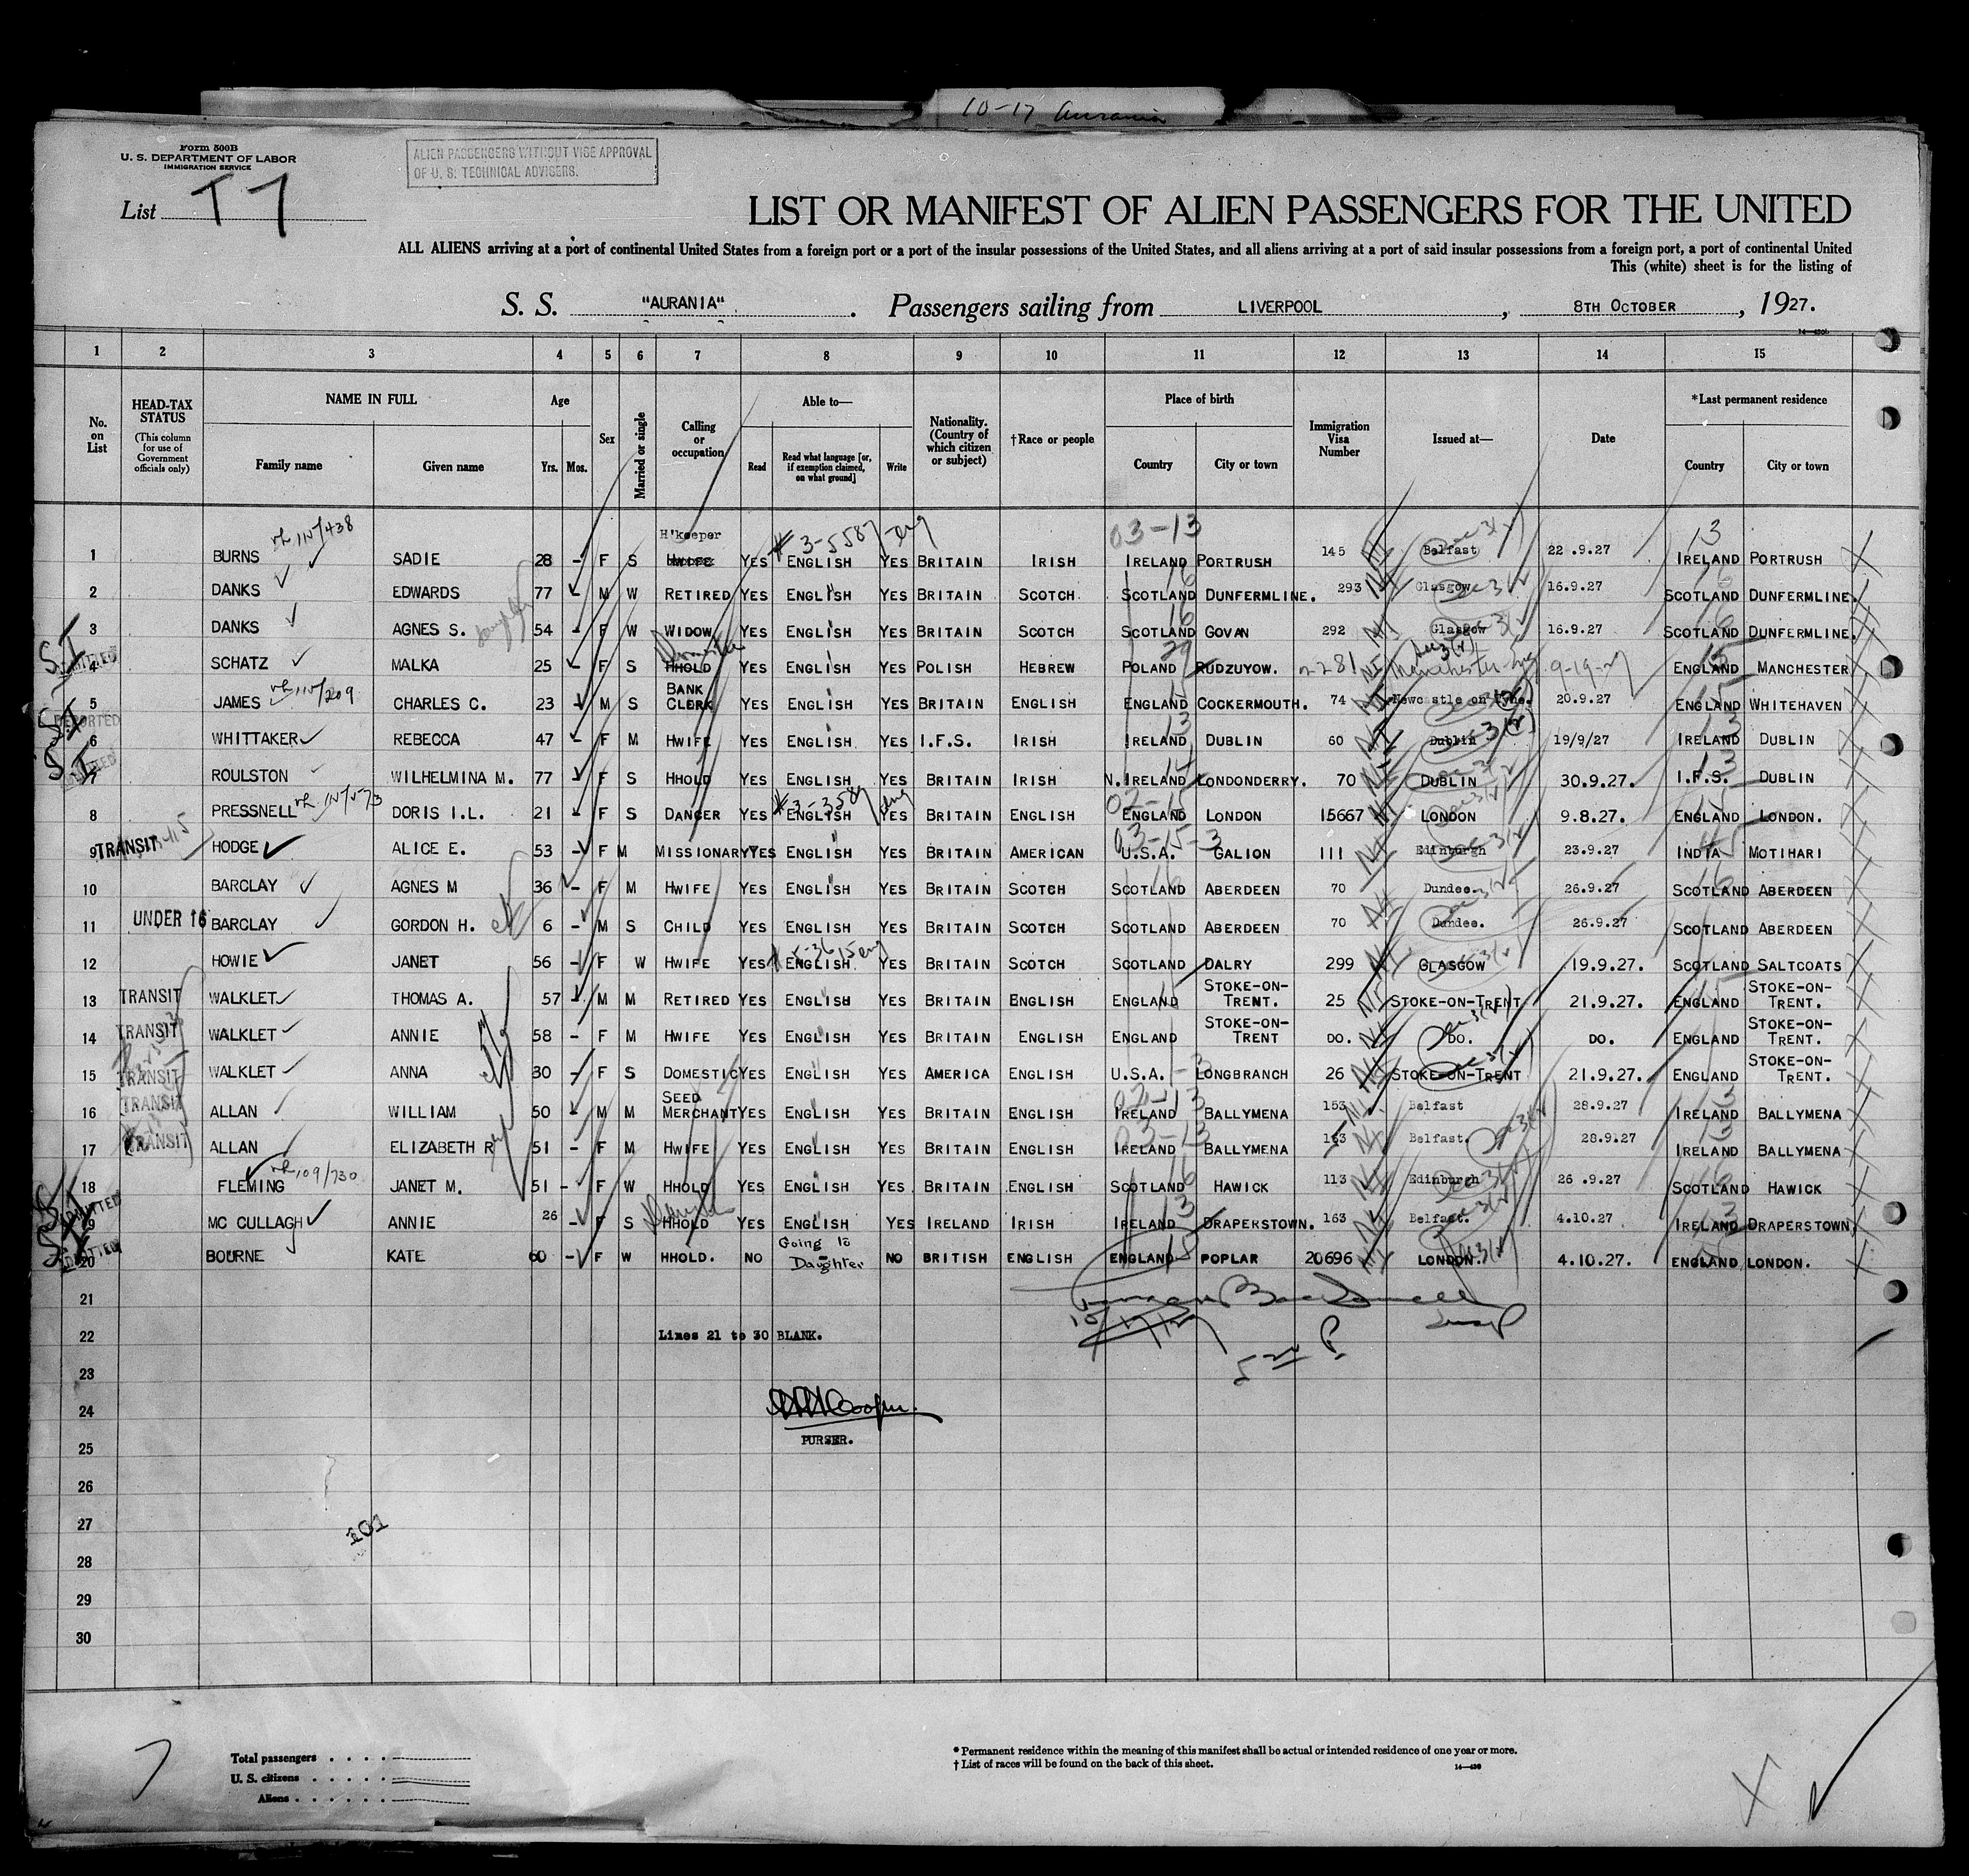 10-17 Aurania
Form 500B
U. S. DEPARTMENT OF LABOR
IMMIGRATION SERVICE
ALIEN PASSENGERS WITHOUT VISE APPROVAL
OF U. S. TECHNICAL ADVISERS.
List T 7
LIST OR MANIFEST OF ALIEN PASSENGERS FOR THE UNITED
ALL ALIENS arriving at a port of continental United States from a foreign port or a port of the insular possessions of the United States, and all aliens arriving at a port of said insular possessions from a foreign port, a port of continental United
This (white) sheet is for the listing of
S. S. "AURANIA". Passengers sailing from LIVERPOOL, 8TH OCTOBER, 1927.
1 2 3 4 5 6 7 8 9 10 11 12 13 14 15
No. on List
HEAD-TAX STATUS (This column for use of Government officials only)
NAME IN FULL
Family name Given name
Age
Yrs. Mos.
Sex
Married or single
Calling or occupation
Able to—
Read Read what language [or, if exemption claimed, on what ground] Write
Nationality. (Country of which citizen or subject)
†Race or people
Place of birth
Country City or town
Immigration Visa Number
Issued at—
Date
*Last permanent residence
Country City or town
1 BURNS SADIE 28 - F S H'keeper YES ENGLISH YES BRITAIN IRISH IRELAND PORTRUSH 145 Belfast 22.9.27 IRELAND PORTRUSH
2 DANKS EDWARDS 77 - M W RETIRED YES ENGLISH YES BRITAIN SCOTCH SCOTLAND DUNFERMLINE. 293 Glasgow 16.9.27 SCOTLAND DUNFERMLINE.
3 DANKS AGNES S. 54 - F W WIDOW YES ENGLISH YES BRITAIN SCOTCH SCOTLAND GOVAN 292 Glasgow 16.9.27 SCOTLAND DUNFERMLINE.
S.I ADMITTED 4 SCHATZ MALKA 25 - F S HHOLD YES ENGLISH YES POLISH HEBREW POLAND RUDZUYOW. 2281 Manchester Eng 9-19-27 ENGLAND MANCHESTER
5 JAMES CHARLES C. 23 - M S BANK CLERK YES ENGLISH YES BRITAIN ENGLISH ENGLAND COCKERMOUTH. 74 Newcastle on Tyne. 20.9.27 ENGLAND WHITEHAVEN
S.I DEPORTED 6 WHITTAKER REBECCA 47 - F M HWIFE YES ENGLISH YES I.F.S. IRISH IRELAND DUBLIN 60 Dublin 19/9/27 IRELAND DUBLIN
S.I 7 ROULSTON WILHELMINA M. 77 - F S HHOLD YES ENGLISH YES BRITAIN IRISH N. IRELAND LONDONDERRY. 70 DUBLIN 30.9.27. I.F.S. DUBLIN
8 PRESSNELL DORIS I.L. 21 - F S DANCER YES ENGLISH YES BRITAIN ENGLISH ENGLAND LONDON 15667 LONDON 9.8.27. ENGLAND LONDON.
9 TRANSIT HODGE ALICE E. 53 - F M MISSIONARY YES ENGLISH YES BRITAIN AMERICAN U.S.A. GALION 111 Edinburgh 23.9.27 INDIA MOTIHARI
10 BARCLAY AGNES M 36 - F M HWIFE YES ENGLISH YES BRITAIN SCOTCH SCOTLAND ABERDEEN 70 Dundee. 26.9.27 SCOTLAND ABERDEEN
11 UNDER 16 BARCLAY GORDON H. 6 - M S CHILD YES ENGLISH YES BRITAIN SCOTCH SCOTLAND ABERDEEN 70 Dundee. 26.9.27 SCOTLAND ABERDEEN
12 HOWIE JANET 56 - F W HWIFE YES ENGLISH YES BRITAIN SCOTCH SCOTLAND DALRY 299 GLASGOW 19.9.27. SCOTLAND SALTCOATS
13 TRANSIT WALKLET THOMAS A. 57 - M M RETIRED YES ENGLISH YES BRITAIN ENGLISH ENGLAND STOKE-ON-TRENT. 25 STOKE-ON-TRENT 21.9.27. ENGLAND STOKE-ON-TRENT.
14 TRANSIT WALKLET ANNIE 58 - F M HWIFE YES ENGLISH YES BRITAIN ENGLISH ENGLAND STOKE-ON-TRENT DO. DO. DO. ENGLAND STOKE-ON-TRENT.
15 TRANSIT WALKLET ANNA 30 - F S DOMESTIC YES ENGLISH YES AMERICA ENGLISH U.S.A. LONGBRANCH 26 STOKE-ON-TRENT 21.9.27. ENGLAND STOKE-ON-TRENT.
16 TRANSIT ALLAN WILLIAM 50 - M M SEED MERCHANT YES ENGLISH YES BRITAIN ENGLISH IRELAND BALLYMENA 153 Belfast 28.9.27 IRELAND BALLYMENA
17 TRANSIT ALLAN ELIZABETH R 51 - F M HWIFE YES ENGLISH YES BRITAIN ENGLISH IRELAND BALLYMENA 153 Belfast. 28.9.27 IRELAND BALLYMENA
18 FLEMING JANET M. 51 - F W HHOLD YES ENGLISH YES BRITAIN ENGLISH SCOTLAND HAWICK 113 Edinburgh 26.9.27 SCOTLAND HAWICK
S.I ADMITTED 19 MC CULLAGH ANNIE 26 - F S HHOLD YES ENGLISH YES IRELAND IRISH IRELAND DRAPERSTOWN. 163 Belfast. 4.10.27 IRELAND DRAPERSTOWN.
S.I ADMITTED 20 BOURNE KATE 60 - F W HHOLD. NO Going to Daughter NO BRITISH ENGLISH ENGLAND POPLAR 20696 LONDON. 4.10.27. ENGLAND LONDON.
21
22 Lines 21 to 30 BLANK.
23
24
PURSER.
25
26
27
101
28
29
30
Total passengers
U. S. citizens
Aliens
* Permanent residence within the meaning of this manifest shall be actual or intended residence of one year or more.
† List of races will be found on the back of this sheet.
14—430